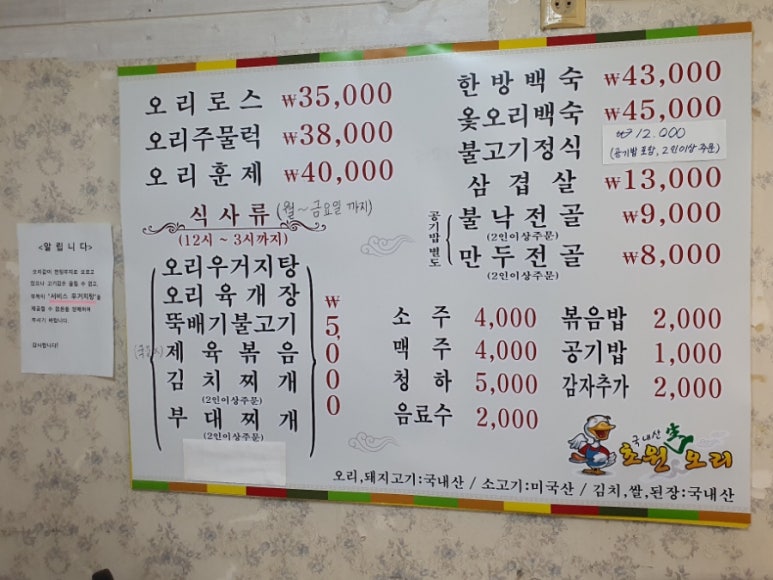 오리로스 ₩35,000
오리주물럭 ₩38,000
오리훈제 ₩40,000
식사류 (월~금요일 까지)
(12시 ~ 3시까지)
오리우거지탕
오리육개장
뚝배기불고기
제육볶음
김치찌개
(2인이상주문)
부대찌개
(2인이상주문)
₩5,000
한방백숙 ₩43,000
옻오리백숙 ₩45,000
불고기정식 ₩12.000
(공기밥 포함, 2인이상 주문)
삼겹살 ₩13,000
공기밥별도
불낙전골 ₩9,000
(2인이상주문)
만두전골 ₩8,000
(2인이상주문)
소주 4,000
맥주 4,000
청하 5,000
음료수 2,000
볶음밥 2,000
공기밥 1,000
감자추가 2,000
국내산
초원오리
오리,돼지고기:국내산 / 소고기:미국산 / 김치,쌀,된장:국내산
<알립니다>
"서비스 우거지탕"을
감사합니다!